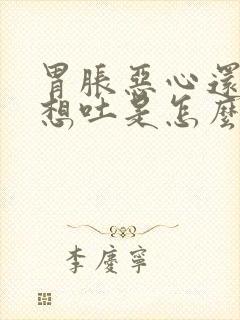 胃脹惡心還
想吐是怎麼
李慶寧